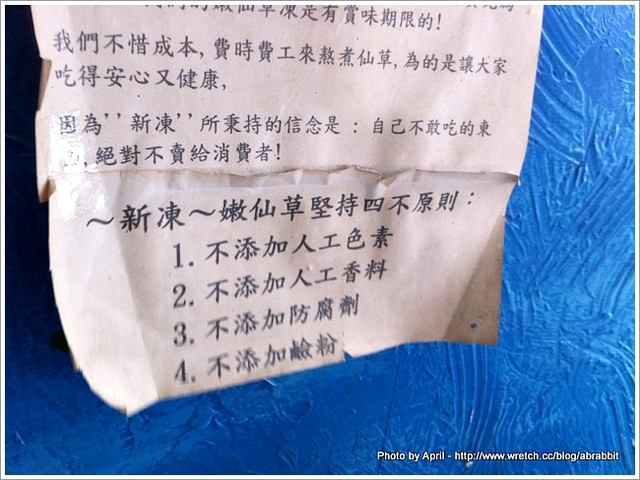 我們的嫩仙草凍是有賞味期限的!
我們不惜成本,費時費工來熬煮仙草,為的是讓大家
吃得安心又健康,
因為''新凍''所秉持的信念是：自己不敢吃的東
,絕對不賣給消費者!
～新凍～嫩仙草堅持四不原則：
1.不添加人工色素
2.不添加人工香料
3.不添加防腐劑
4.不添加鹼粉
Photo by April - http://www.wretch.cc/blog/abrabbit